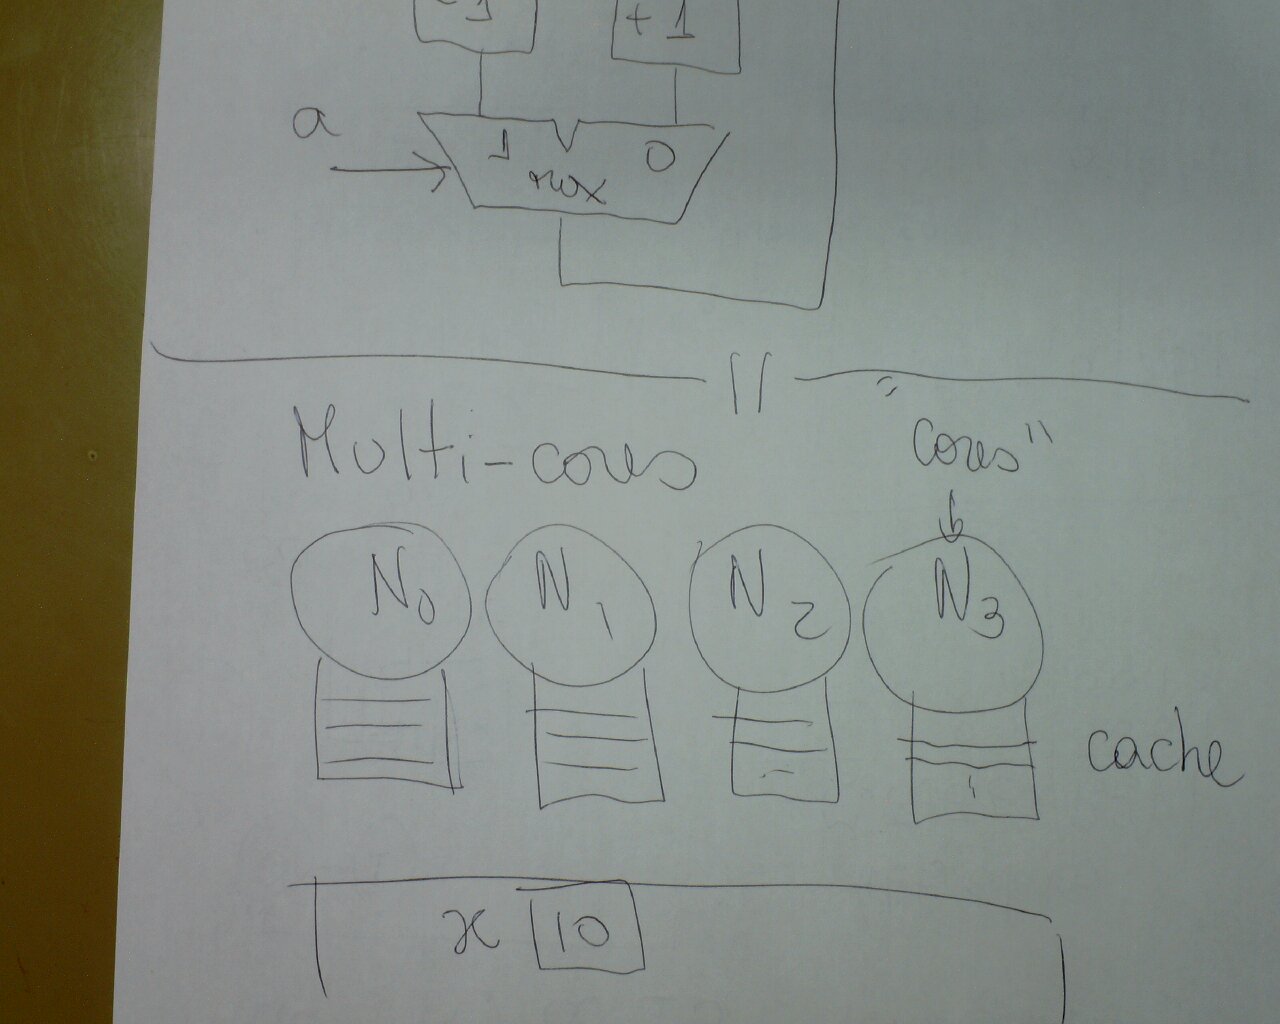 -1 +1
a
1 0
mux
Multi-cores "cores"
N0 N1 N2 N3
cache
x 10